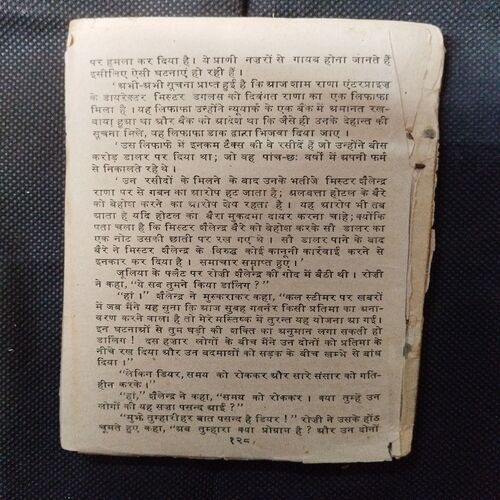 पर हमला कर दिया है। ये प्राणी नज़रों से गायब होना जानते हैं
इसीलिए ऐसी घटनाएं हो रही हैं।
'अभी-अभी सूचना प्राप्त हुई है कि आज शाम राणा एंटरप्राइज़
के डायरेक्टर मिस्टर डगलस को दिवंगत राणा का एक लिफाफा
मिला है। यह लिफाफा उन्होंने न्यूयार्क के एक बैंक में अमानत रख-
वाया हुआ था और बैंक को आदेश था कि जैसे ही उनके देहान्त की
सूचना मिले, वह लिफाफा डाक द्वारा भिजवा दिया जाए।
'उस लिफाफे में इनकम टैक्स की वे रसीदें हैं जो उन्होंने बीस
करोड़ डालर पर दिया था; जो वह पांच-छः वर्षों में अपनी फर्म
से निकालते रहे थे।
'उन रसीदों के मिलने के बाद उनके भतीजे मिस्टर शैलेन्द्र
राणा पर से गबन का आरोप हट जाता है; अलबत्ता होटल के बैरे
को बेहोश करने का आरोप शेष रहता है। यह आरोप भी तब
आता है यदि होटल का बैरा मुकदमा दायर करना चाहे; क्योंकि
पता चला है कि मिस्टर शैलेन्द्र बैरे को बेहोश करके सौ डालर का
एक नोट उसकी छाती पर रख गए थे। सौ डालर पाने के बाद
बैरे ने मिस्टर शैलेन्द्र के विरुद्ध कोई कानूनी कार्रवाई करने से
इनकार कर दिया है। समाचार समाप्त हुए।'
जूलिया के फ्लैट पर रोज़ी शैलेन्द्र की गोद में बैठी थी। रोज़ी
ने कहा, "ये सब तुमने किया डार्लिंग?"
"हां।" शैलेन्द्र ने मुस्कराकर कहा, "कल स्टीमर पर खबरों
में जब मैंने यह सुना कि आज सुबह गवर्नर किसी प्रतिमा का अना-
वरण करने वाला है तो मेरे मस्तिष्क में तुरन्त यह योजना आ गई।
इन घटनाओं से तुम घड़ी की शक्ति का अनुमान लगा सकती हो
डार्लिंग! दस हजार लोगों के बीच मैंने उन दोनों को प्रतिमा के
नीचे रख दिया और उन बदमाशों को सड़क के बीच खम्भे से बांध
दिया।"
"लेकिन डियर, समय को रोककर और सारे संसार को गति-
हीन करके।"
"हां," शैलेन्द्र ने कहा, "समय को रोककर। क्या तुम्हें उन
लोगों की यह सज़ा पसन्द आई?"
"मुझे तुम्हारी हर बात पसन्द है डियर!" रोज़ी ने उसके होंठ
चूमते हुए कहा, "अब तुम्हारा क्या प्रोग्राम है? और उन दोनों
१२८